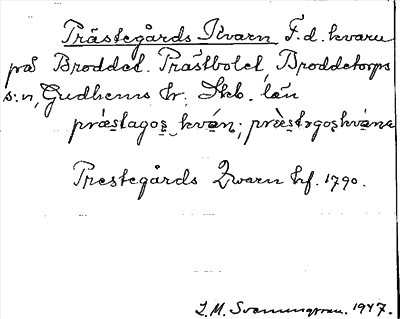 Prästegårds Kvarn F.d. kvarn
på Broddet. Prästbolet, Broddetorps
s:n, Gudhems hr. Skb. län
præstagoṣ kván; prèstrgoṣkvána
Prestegårds Qwarn hf. 1790.
L. M. Svenungsson. 1947.